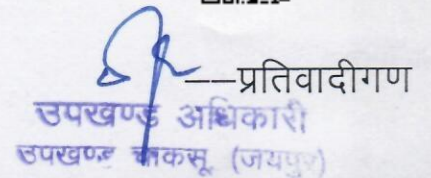 ——प्रतिवादीगण
उपखण्ड अधिकारी
उपखण्ड चाकसू (जयपुर)